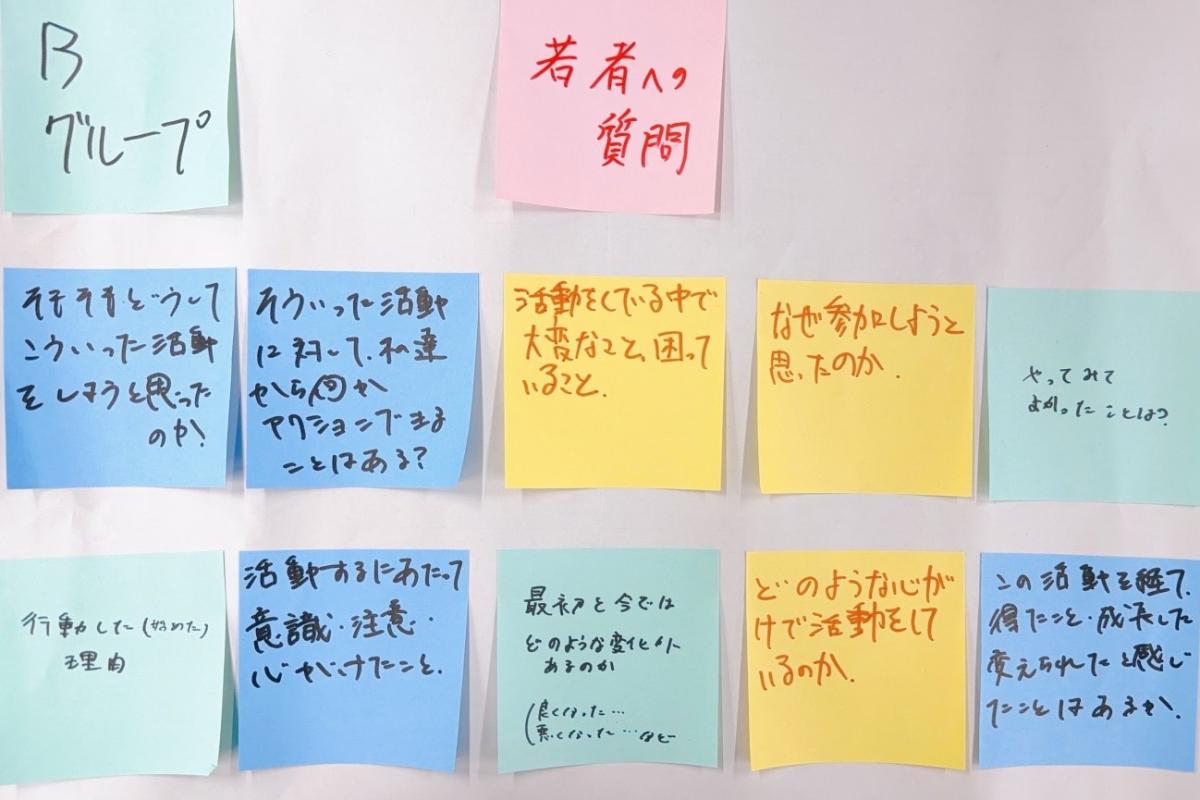 B
グループ
若者への
質問
そもそもどうして
こういった活動
をしようと思った
のか?
そういった活動
に対して、私達
から何か
アクションできる
ことはある?
活動をしている中で
大変なこと、困って
いること.
なぜ参加しようと
思ったのか.
やってみて
よかったことは?
行動した(始めた)
理由
活動するにあたって
意識・注意・
心がけたこと.
最初と今では
どのような変化が
あるのか
(良くなった…
悪くなった…など
どのような心が
けで活動をして
いるのか.
この活動を経て、
得たこと・成長した
変えられたと感じ
たことはあるか.